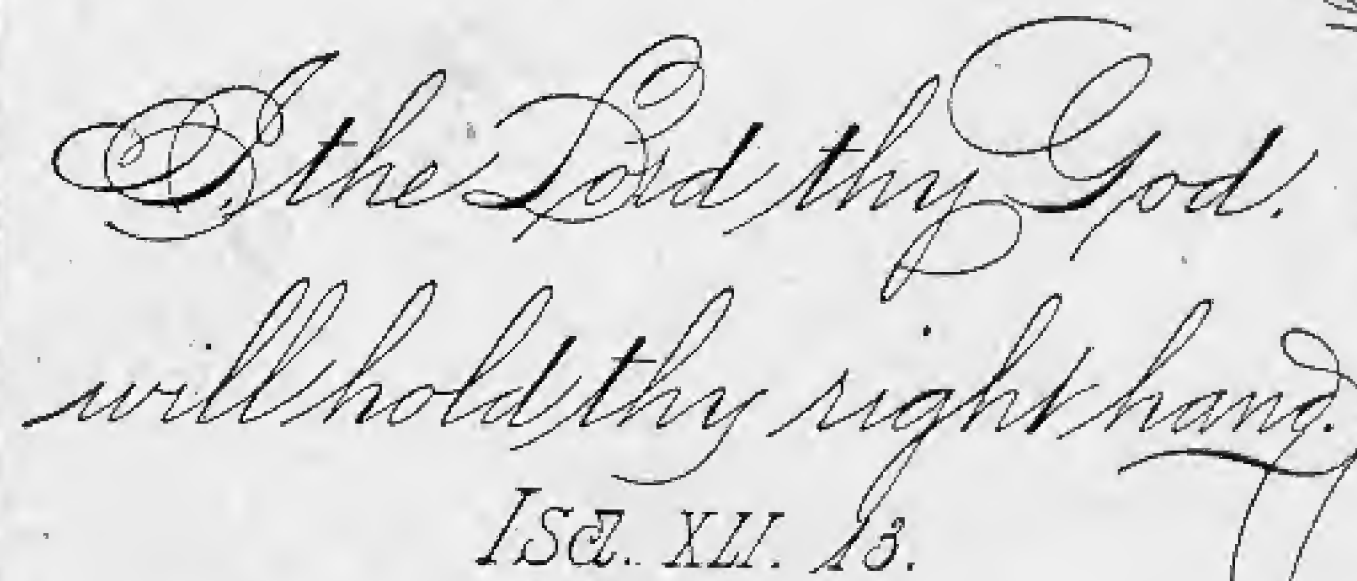 I, the Lord thy God.
will hold thy right hand.
Isa. XLI. 13.